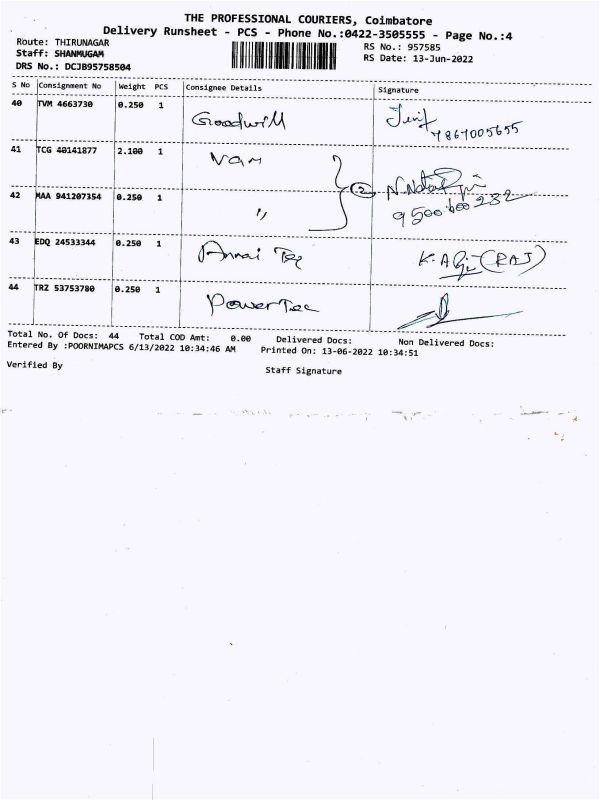 THE PROFESSIONAL COURIERS, Coimbatore
Delivery Runsheet - PCS - Phone No.:0422-3505555 - Page No.:4
Route: THIRUNAGAR
RS No.: 957585
Staff: SHANMUGAM
RS Date: 13-Jun-2022
DRS No.: DCJB95758504
S No Consignment No Weight PCS Consignee Details Signature
40 TVM 4663730 0.250 1 Goodwill
7867005655
41 TCG 40141877 2.100 1 Nam
2
42 MAA 941207354 0.250 1 〃
9500600232
43 EDQ 24533344 0.250 1 Annai Tec K. (RAJ)
44 TRZ 53753780 0.250 1 PowerTec
Total No. Of Docs: 44 Total COD Amt: 0.00 Delivered Docs: Non Delivered Docs:
Entered By :POORNIMAPCS 6/13/2022 10:34:46 AM Printed On: 13-06-2022 10:34:51
Verified By
Staff Signature